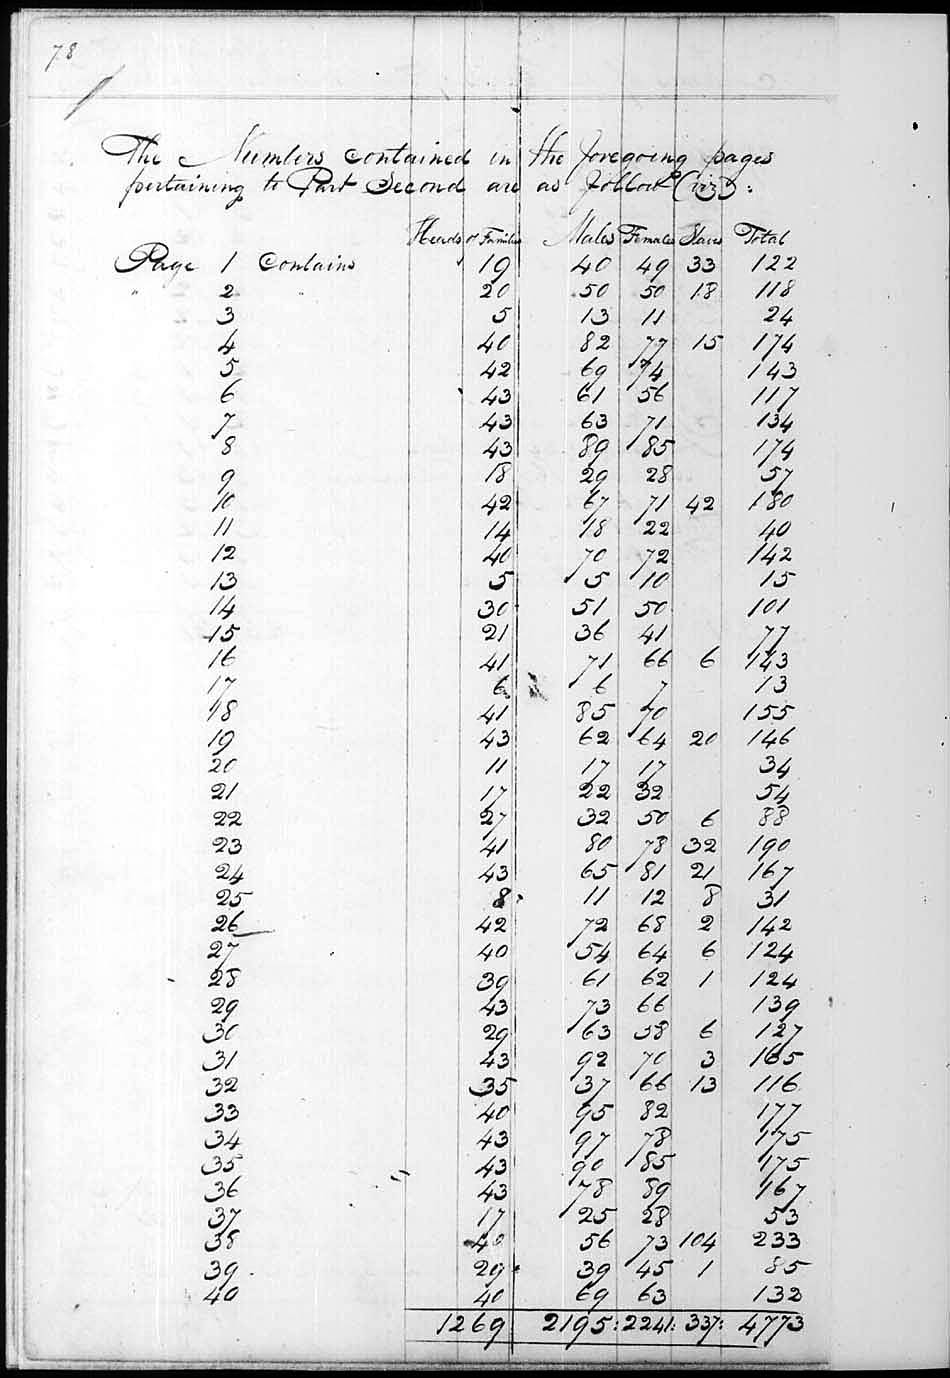 78
The Numbers contained in the foregoing pages
pertaining to Part Second are as follow (viz):
Heads of Families Males Females Slaves Total
Page 1 Contains 19 40 49 33 122
" 2 20 50 50 18 118
3 5 13 11 24
4 40 82 77 15 174
5 42 69 74 143
6 43 61 56 117
7 43 63 71 134
8 43 89 85 174
9 18 29 28 57
10 42 67 71 42 180
11 14 18 22 40
12 40 70 72 142
13 5 5 10 15
14 30 51 50 101
15 21 36 41 77
16 41 71 66 6 143
17 6 6 7 13
18 41 85 70 155
19 43 62 64 20 146
20 11 17 17 34
21 17 22 32 54
22 27 32 50 6 88
23 41 80 78 32 190
24 43 65 81 21 167
25 8 11 12 8 31
26 42 72 68 2 142
27 40 54 64 6 124
28 39 61 62 1 124
29 43 73 66 139
30 29 63 58 6 127
31 43 92 70 3 165
32 35 37 66 13 116
33 40 95 82 177
34 43 97 78 175
35 43 90 85 175
36 43 78 89 167
37 17 25 28 53
38 40 56 73 104 233
39 29 39 45 1 85
40 40 69 63 132
1269 2195: 2241: 337: 4773